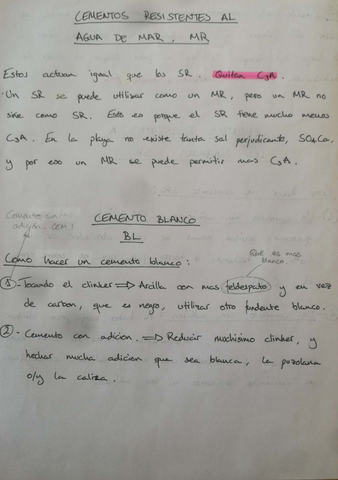 CEMENTOS RESISTENTES AL
AGUA DE MAR. MR
Estos actuan igual que los SR. Quitan C3A.
Un SR se puede utilizar como un MR, pero un MR no
sirve como SR. Esto es porque el SR tiene mucho menos
C3A. En la playa no existe tanta sal perjudicante, SO4Ca,
y por eso un MR se puede permitir mas C3A.
Cemento sin
adición. CEM I
CEMENTO BLANCO
BL
Como hacer un cemento blanco:
Que es mas
blanco.
1- Tocando el clinker => Arcilla con mas feldespato y en vez
de carbon, que es negro, utilizar otro fundente blanco.
2- Cemento con adicion. => Reducir muchisimo clinker, y
hechar mucha adicion que sea blanca, la puzolana
o/y la caliza.